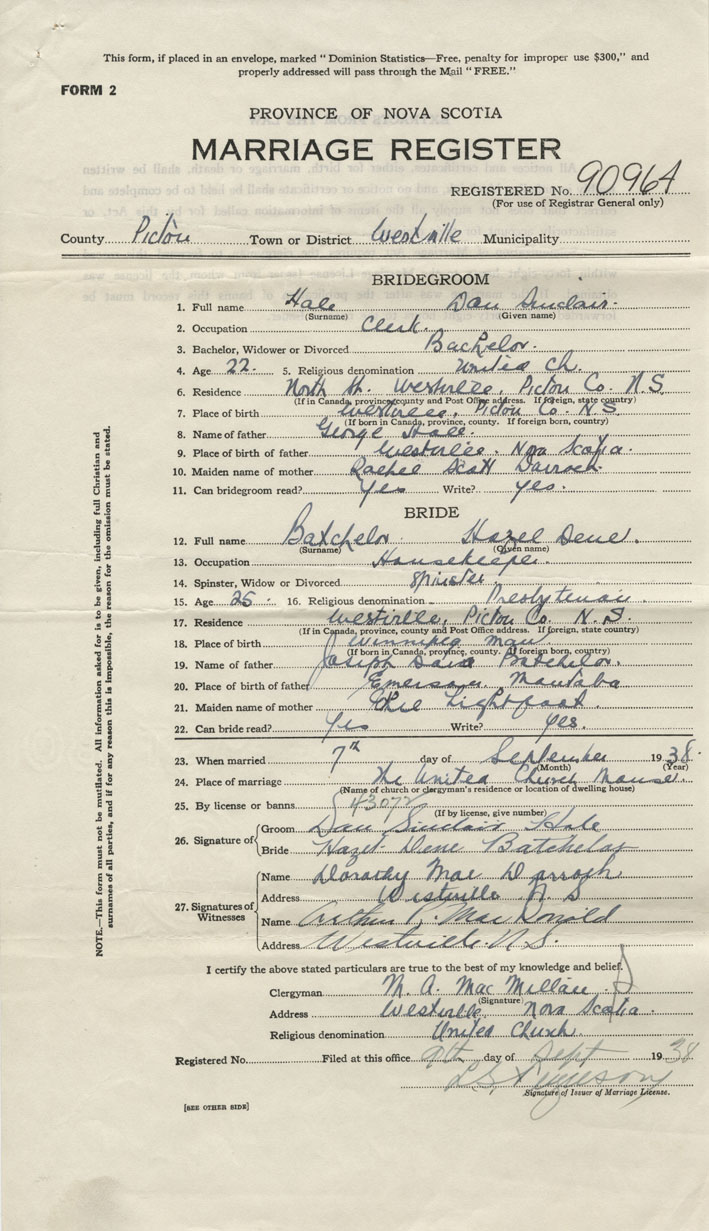 This form, if placed in an envelope, marked "Dominion Statistics—Free, penalty for improper use $300," and
properly addressed will pass through the Mail "FREE."
FORM 2
PROVINCE OF NOVA SCOTIA
MARRIAGE REGISTER
REGISTERED No. 90964
(For use of Registrar General only)
County Pictou Town or District Westville Municipality
BRIDEGROOM
1. Full name Hale Dan Sinclair.
(Surname) (Given name)
2. Occupation Clerk.
3. Bachelor, Widower or Divorced Bachelor.
4. Age 22. 5. Religious denomination United Ch.
6. Residence North St. Westville, Pictou Co. N.S.
(If in Canada, province, county and Post Office address. If foreign, state country)
7. Place of birth Westville, Pictou Co. N.S.
(If born in Canada, province, county. If foreign born, country)
8. Name of father George Hale.
9. Place of birth of father Westville. Nova Scotia.
10. Maiden name of mother Rachel Scott Darroch.
11. Can bridegroom read? Yes Write? yes.
BRIDE
12. Full name Batchelor Hazel Dene.
(Surname) (Given name)
13. Occupation Housekeeper.
14. Spinster, Widow or Divorced Spinster
15. Age 25. 16. Religious denomination Presbyterian.
17. Residence Westville, Pictou Co. N.S.
(If in Canada, province, county and Post Office address. If foreign, state country)
18. Place of birth Winnipeg Man
(If born in Canada, province, county. If foreign born, country)
19. Name of father Joseph David Batchelor.
20. Place of birth of father Emerson. Manitoba
21. Maiden name of mother Lightfoot.
22. Can bride read? Yes Write? Yes.
23. When married 7th day of September 1938.
(Month) (Year)
24. Place of marriage The United Church Manse.
(Name of church or clergyman's residence or location of dwelling house)
25. By license or banns 43072
(If by license, give number)
26. Signature of Groom Dan Sinclair Hale
Bride Hazel Dene Batchelor
27. Signatures of Witnesses Name Dorothy Mae Darroch
Address Westville N S
Name Arthur P. MacDonald
Address Westville. N.S.
I certify the above stated particulars are true to the best of my knowledge and belief.
Clergyman M. A. MacMillan
(Signature)
Address Westville Nova Scotia.
Religious denomination United Church
Registered No. Filed at this office 9th day of Sept 1938
Signature of Issuer of Marriage License.
[SEE OTHER SIDE]
NOTE.—This form must not be mutilated. All information asked for is to be given, including full Christian and
surnames of all parties, and if for any reason this is impossible, the reason for the omission must be stated.